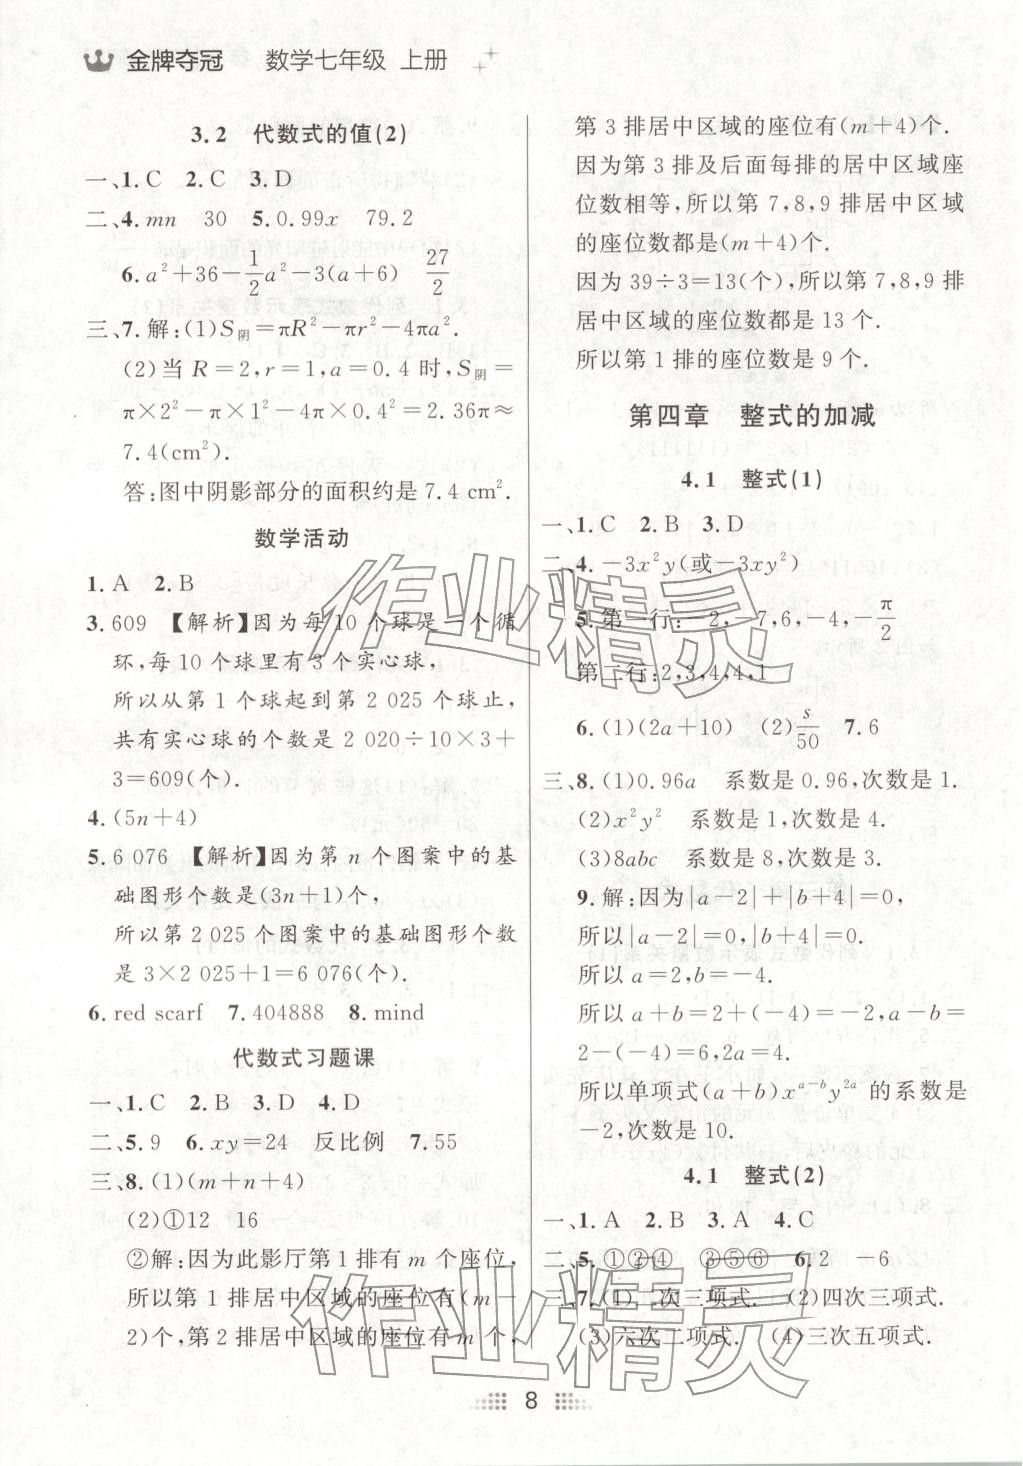 金牌夺冠 数学七年级 上册
3.2 代数式的值(2)
一、1.C 2.C 3.D
二、4.mn 30 5.0.99x 79.2
6.a²+36-1/2a²-3(a+6) 27/2
三、7.解:(1)S阴=πR²-πr²-4πa².
(2)当 R=2,r=1,a=0.4 时,S阴=
π×2²-π×1²-4π×0.4²=2.36π≈
7.4(cm²).
答:图中阴影部分的面积约是 7.4 cm².
数学活动
1.A 2.B
3.609 【解析】因为每 10 个球是一个循
环,每 10 个球里有 3 个实心球,
所以从第 1 个球起到第 2 025 个球止,
共有实心球的个数是 2 020÷10×3+
3=609(个).
4.(5n+4)
5.6 076 【解析】因为第 n 个图案中的基
础图形个数是(3n+1)个,
所以第 2 025 个图案中的基础图形个数
是 3×2 025+1=6 076(个).
6.red scarf 7.404888 8.mind
代数式习题课
一、1.C 2.B 3.D 4.D
二、5.9 6.xy=24 反比例 7.55
三、8.(1)(m+n+4)
(2)①12 16
②解:因为此影厅第 1 排有 m 个座位,
所以第 1 排居中区域的座位有(m-
2)个,第 2 排居中区域的座位有 m 个,
第 3 排居中区域的座位有(m+4)个.
因为第 3 排及后面每排的居中区域座
位数相等,所以第 7,8,9 排居中区域
的座位数都是(m+4)个.
因为 39÷3=13(个),所以第 7,8,9 排
居中区域的座位数都是 13 个.
所以第 1 排的座位数是 9 个.
第四章 整式的加减
4.1 整式(1)
一、1.C 2.B 3.D
二、4.-3x²y(或-3xy²)
5.第一行:-2,-7,6,-4,-π/2
第二行:2,3,4,4,1
6.(1)(2a+10) (2)s/50 7.6
三、8.(1)0.96a 系数是 0.96,次数是 1.
(2)x²y² 系数是 1,次数是 4.
(3)8abc 系数是 8,次数是 3.
9.解:因为|a-2|+|b+4|=0,
所以|a-2|=0,|b+4|=0.
所以 a=2,b=-4.
所以 a+b=2+(-4)=-2,a-b=
2-(-4)=6,2a=4.
所以单项式(a+b)xᵃ⁻ᵇy²ᵃ 的系数是
-2,次数是 10.
4.1 整式(2)
一、1.A 2.B 3.A 4.C
二、5.①②④ ③⑤⑥ 6.2 -6
三、7.(1)二次三项式. (2)四次三项式.
(3)六次二项式. (4)三次五项式.
作业精灵
作业精灵
8